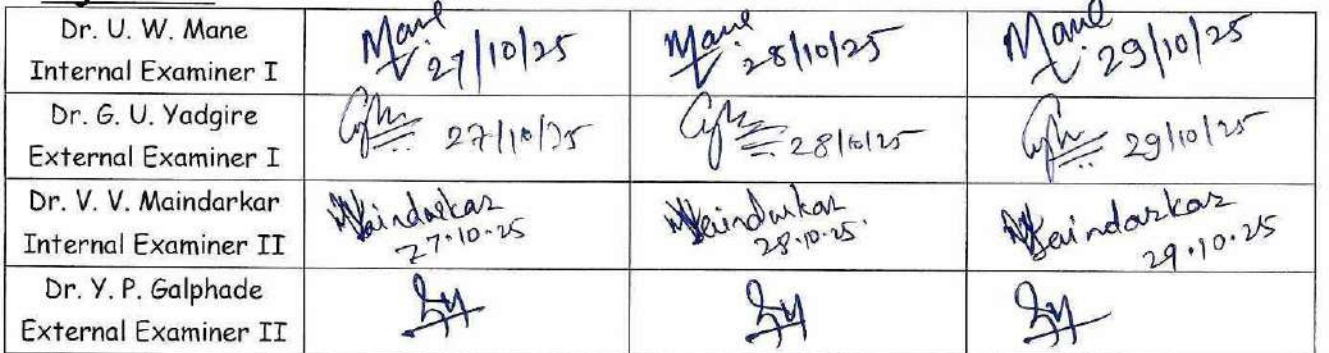 Dr. U. W. Mane
Internal Examiner I
Mane
27/10/25
Mane
28/10/25
Mane
29/10/25
Dr. G. U. Yadgire
External Examiner I
27/10/25
28/10/25
29/10/25
Dr. V. V. Maindarkar
Internal Examiner II
Maindarkar
27.10.25
Maindarkar
28.10.25.
Maindarkar
29.10.25
Dr. Y. P. Galphade
External Examiner II